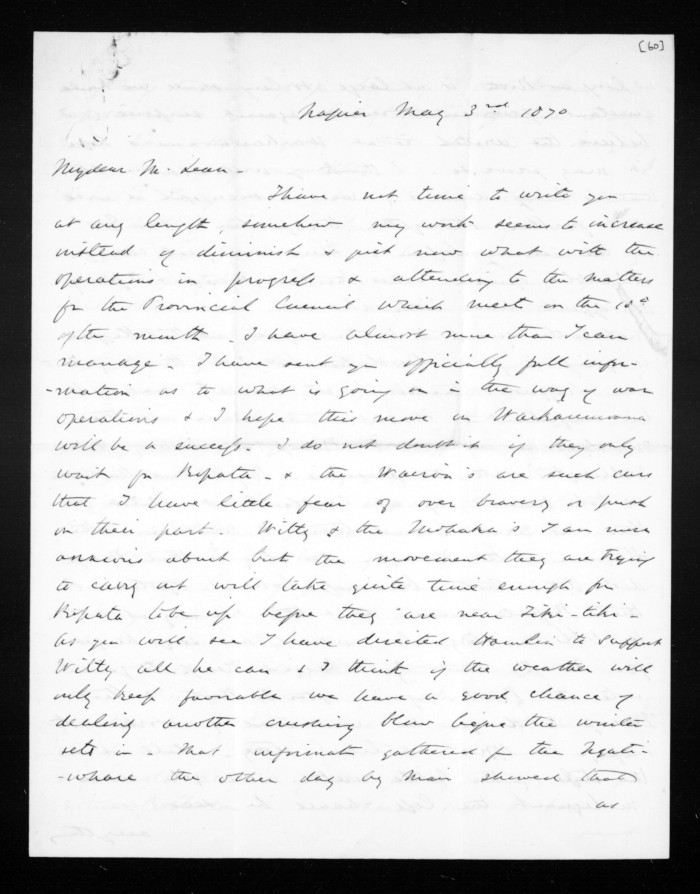 [60]
Napier May 3rd 1870
My dear McLean
I have not time to write you
at any length, somehow my work seems to increase
instead of diminish & just now what with the
operations in progress & attending to the matters
for the Provincial Council which meet on the
of the month - I have almost more than I can
manage - I have sent you officially full infor-
-mation as to what is going on in the way of war
operations & I hope this move on Waikaremoana
will be a success. I do not doubt it if they only
wait for Ropata - & the Wairoa's are such curs
that I have little fear of over bravery or push
on their part. Witty & the Mohaka's I am more
anxious about but the movement they are trying
to carry out will take quite time enough for
Ropata to be up before they are near Tiki-tiki -
as you will see I have directed Hamlin to support
Witty all he can & I think if the weather will
only keep favorable we have a good chance of
dealing another crushing blow before the winter
sets in - That informatn gathered fr the Ngati-
-whare the other day by main shewed that
as